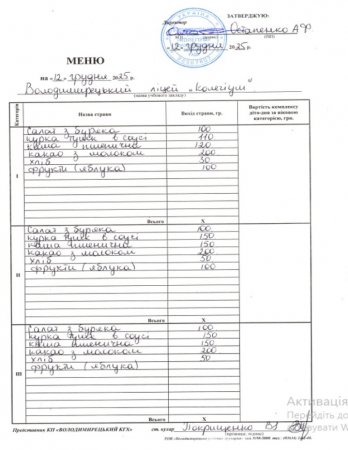 ЗАТВЕРДЖУЮ:
Директор Остапенко А Ф
(ПІП)
"12" грудня 2025р.
МЕНЮ
на "12" грудня 2025р.
Володимирецький ліцей "Колегіум"
(назва учбового закладу)
Категорія Назва страви Вихід страви, гр. Вартість комплексу літо-дня за віковою категорією, грн.
I
Салат з буряка 100
курка туш. в соусі 110
каша пшенична 120
какао з молоком 200
хліб 30
фрукти (яблука) 100
Всього X
II
Салат з буряка 100
курка туш. в соусі 150
каша пшенична 150
какао з молоком 200
хліб 50
фрукти (яблука) 100
Всього X
III
Салат з буряка 100
курка туш. в соусі 150
каша пшенична 150
какао з молоком 200
хліб 50
фрукти (яблука)
Всього X
Представник КП «ВОЛОДИМИРЕЦЬКИЙ КГХ» ст. кухар
Активація
Перейдіть до